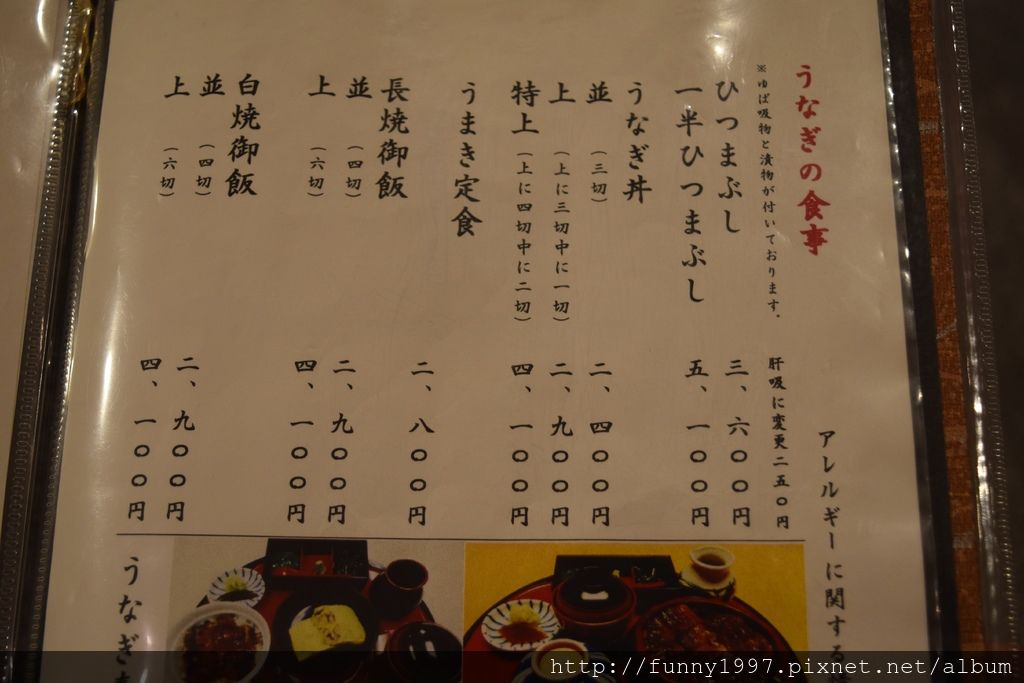 うなぎの食事
※ゆば吸物と漬物が付いております。
肝吸に変更二五〇円
ひつまぶし 三、六〇〇円
一半ひつまぶし 五、一〇〇円
うなぎ丼
並(三切) 二、四〇〇円
上(上に三切中に一切) 二、九〇〇円
特上(上に四切中に二切) 四、一〇〇円
うまき定食 二、八〇〇円
長焼御飯
並(四切) 二、九〇〇円
上(六切) 四、一〇〇円
白焼御飯
並(四切) 二、九〇〇円
上(六切) 四、一〇〇円
アレルギーに関する
うなぎ
http://funny1997.pixnet.net/album